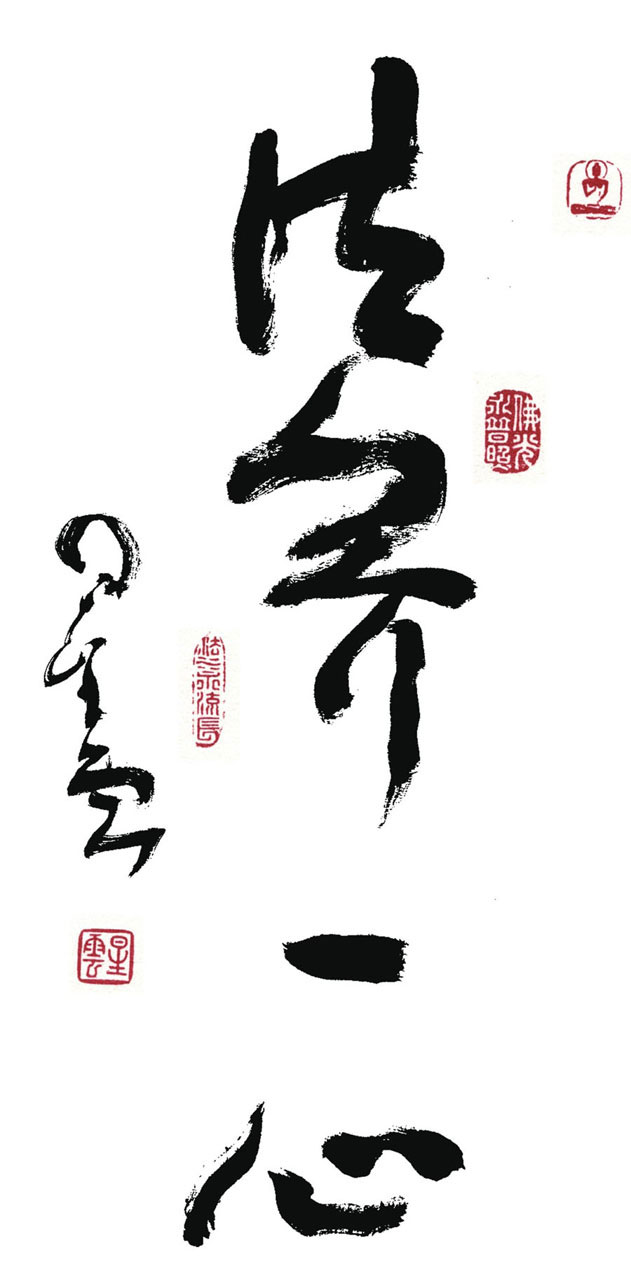 法界一心
佛光
普照
法水流長
星雲
星雲